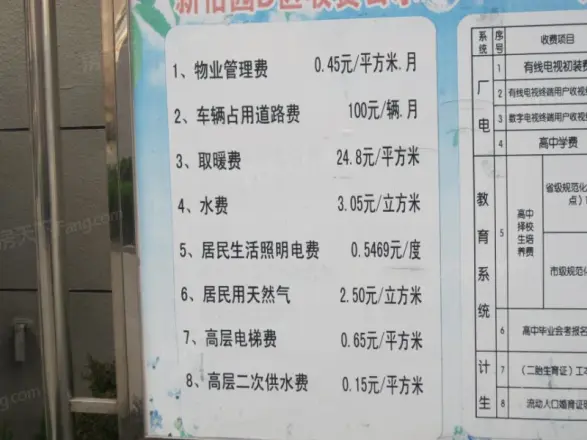 新怡园B区收费公示
1、物业管理费 0.45元/平方米.月
2、车辆占用道路费 100元/辆.月
3、取暖费 24.8元/平方米
4、水费 3.05元/立方米
5、居民生活照明电费 0.5469元/度
6、居民用天然气 2.50元/立方米
7、高层电梯费 0.65元/平方米
8、高层二次供水费 0.15元/平方米
系统 序号 收费项目
广电
1 有线电视初装费
2 有线电视终端用户收视
3 数字电视终端用户收视
教育系统
4 高中学费
5 高中择校生培养费
省级规范化
点）
市级规范化
6 高中毕业会考报名
计生
7 （二胎生育证）工本
8 流动人口婚育证